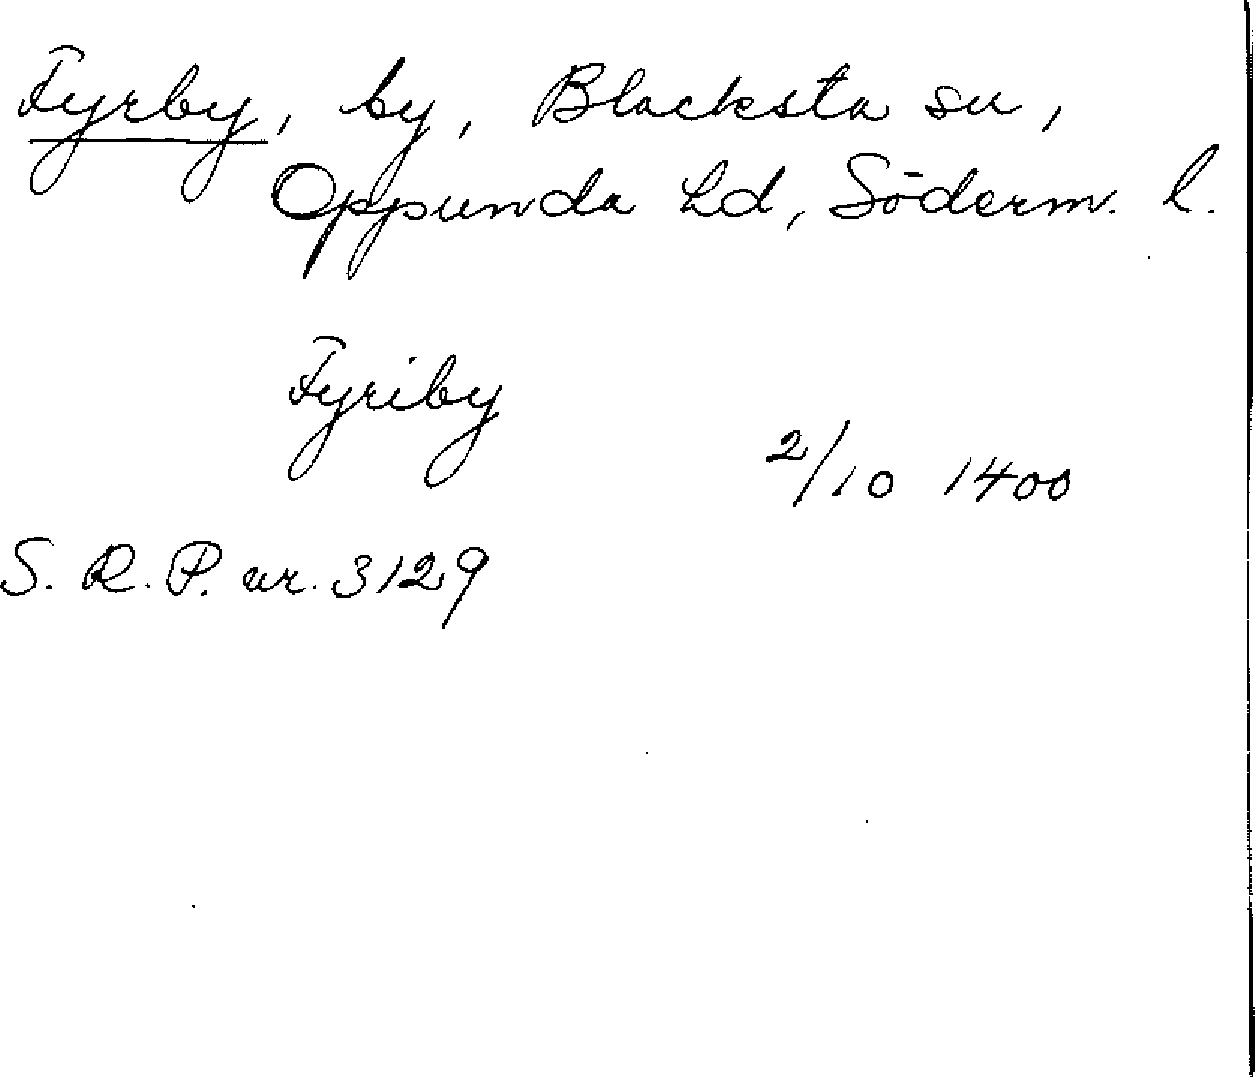 Fyrby, by, Blacksta sn,
Oppunda hd, Söderm. l.
Fyriby
2/10 1400
S. R. P. nr. 3129